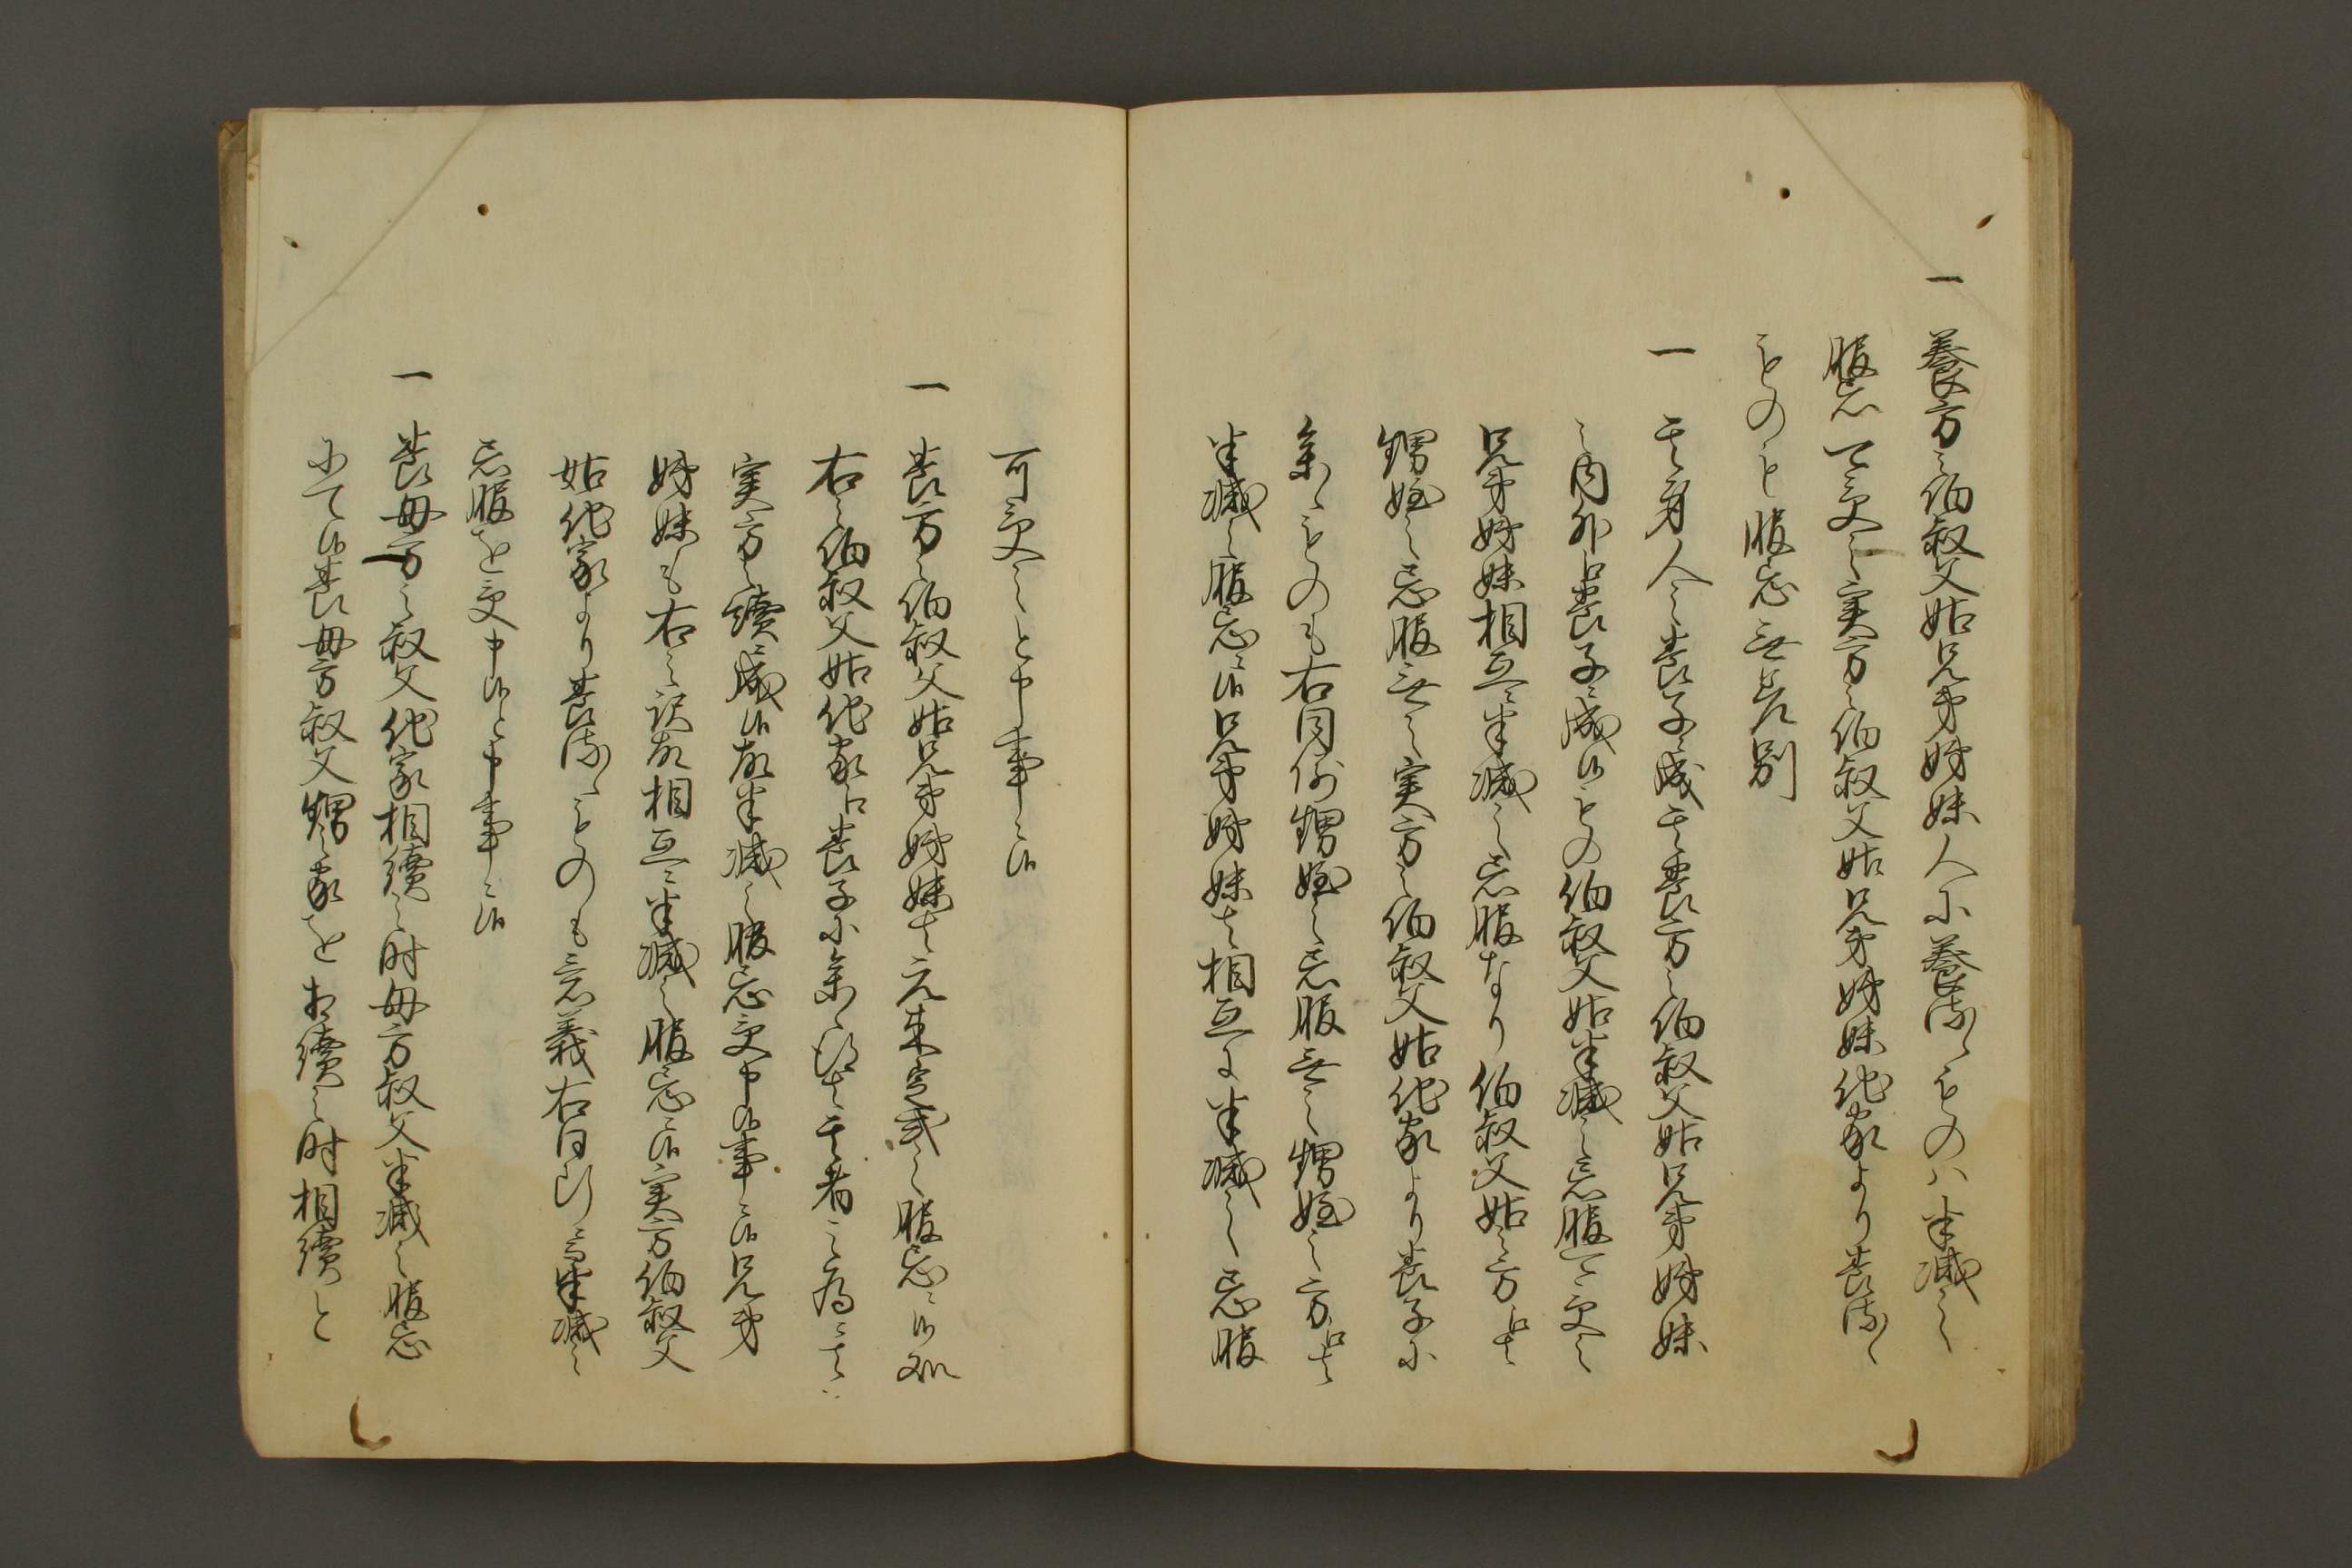 一 養方之伯叔父姑兄弟姉妹人に養るゝものハ半減之
服忌可受之実方之伯叔父姑兄弟姉妹他家より養るゝ
ものと服忌無差別
一 其身人之養子ニ成其養方之伯叔父姑兄弟姉妹
之内外江養子ニ成候もの伯叔父姑半減之忌服可受之
兄弟姉妹相互ニ半減之忌服なり伯叔父姑之方江ハ
甥姪之忌服無之実方之伯叔父姑他家より養子に
参ゝものも右同例甥姪之忌服無之甥姪之方江ハ
半減之服忌ニ候兄弟姉妹ハ相互に半減之忌服
可受之と申事ニ候
一 養方之伯叔父姑兄弟姉妹ハ元来定式之服忌ニ候処
右之伯叔父姑他家江養子に参候得ハ其者之為ニハ
実方之続ニ成候故半減之服忌受申候事ニ候兄弟
姉妹も右之訳故相互ニ半減之服忌ニ候実方伯叔父
姑他家より養るゝものも意義右同断ニ而半減之
忌服を受申候と申事ニ候
一 養母方之叔父他家相続之時母方叔父半減之服忌
にて候養母方叔父甥之家をお続之時相続と